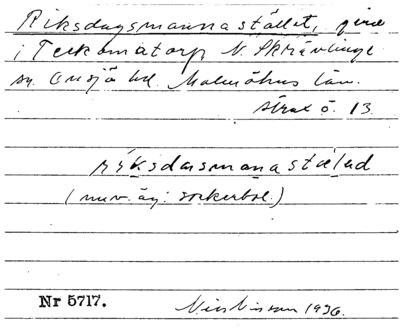 Riksdagsmannastället, gård
i Teckomatorp N. Skrävlinge
sn. Onsjö hd. Malmöhus län.
strax ö. 13.
riksdasmanastälad
(nuv. äg: sockerbol.)
Nr 5717.
Nils Nilsson 1936.